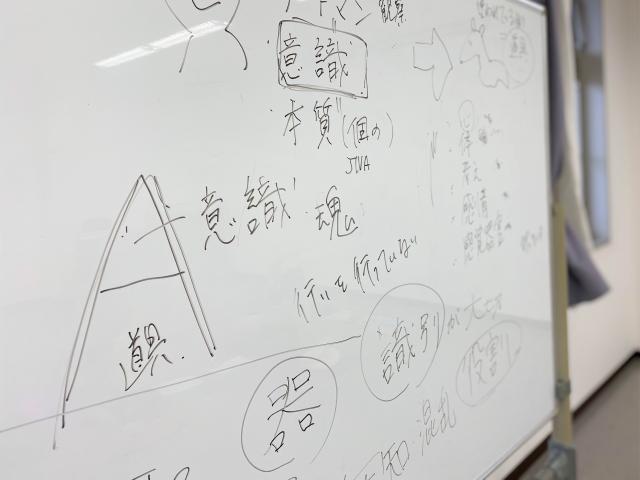 アートマン 観察
意識
道具
本質 (個の)
JIVA
意識 魂
考え
感情
感覚器官
行いを行っていない
道具
識別が大切
器
役割
無知・混乱